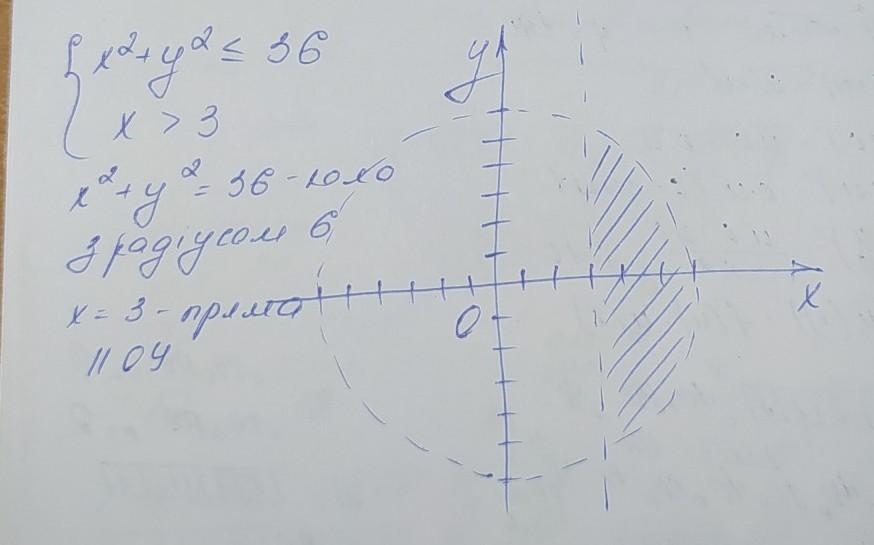 { x² + y² ≤ 36
x > 3
x² + y² = 36 - коло
з радіусом 6
x = 3 - пряма
|| OY
y
0
x